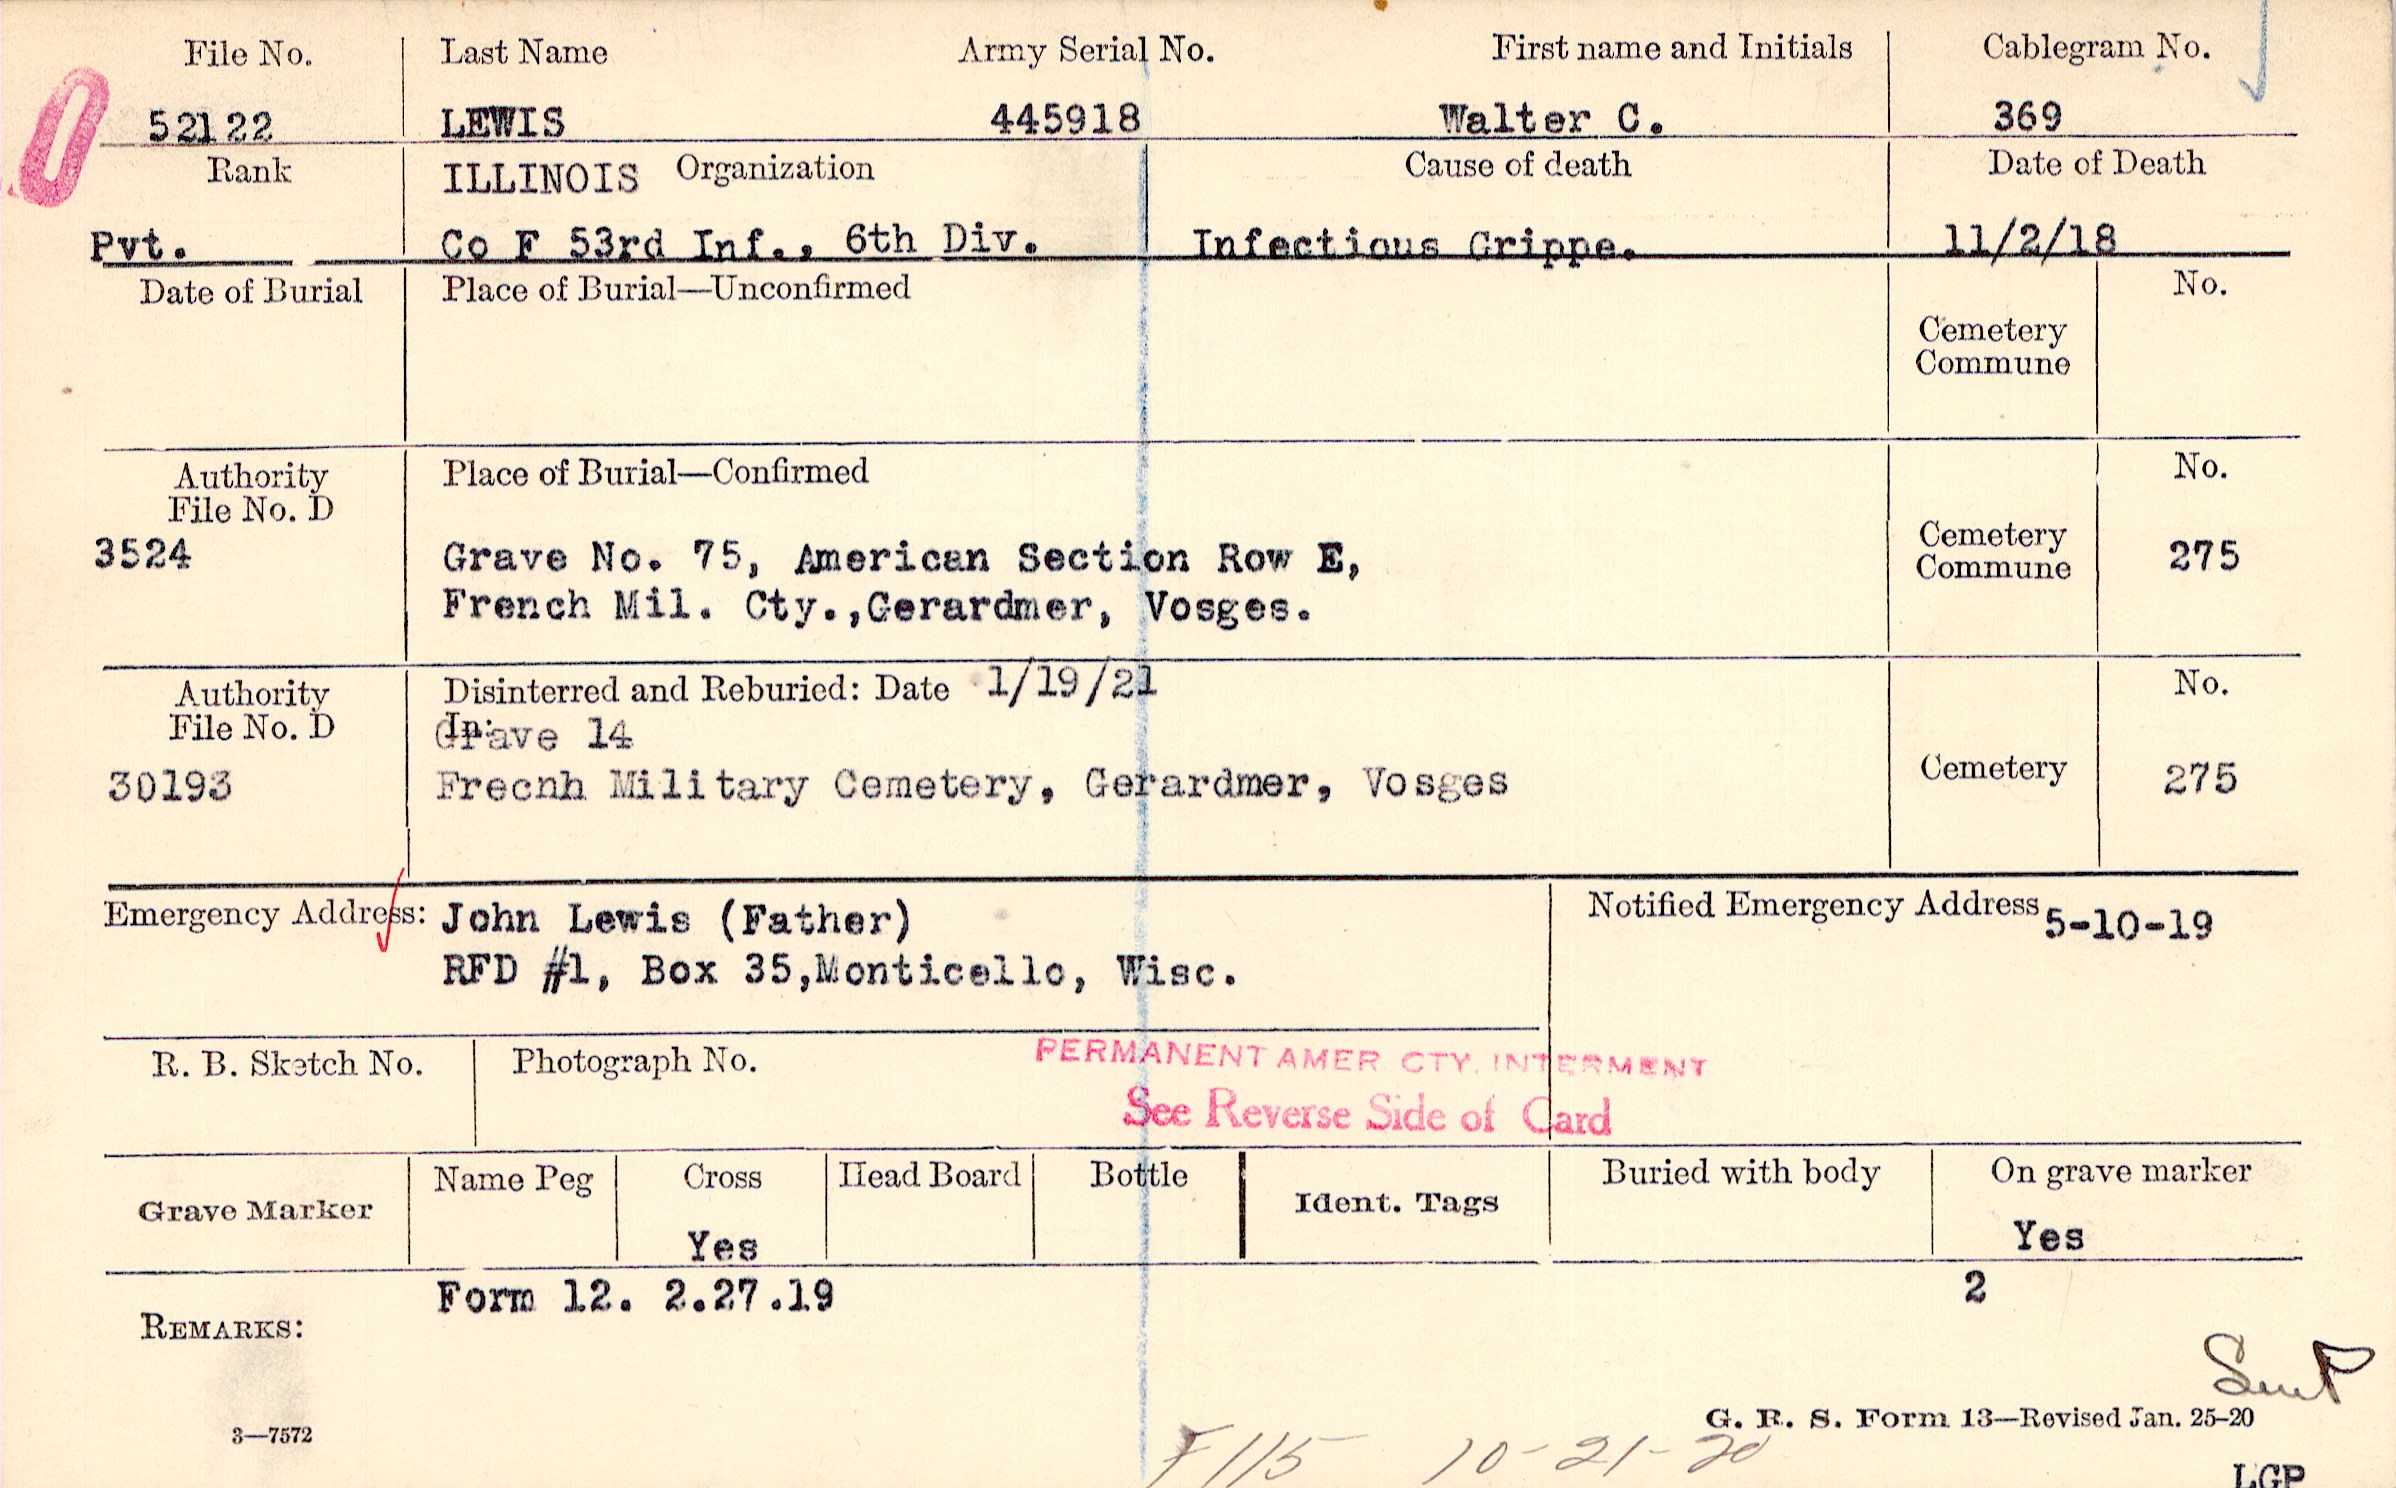 File No. Last Name Army Serial No. First name and Initials Cablegram No.
52122 LEWIS 445918 Walter C. 369
Rank ILLINOIS Organization Cause of death Date of Death
Pvt. Co F 53rd Inf., 6th Div. Infectious Grippe. 11/2/18
Date of Burial Place of Burial—Unconfirmed No.
Cemetery
Commune
Authority Place of Burial—Confirmed No.
File No. D
3524 Grave No. 75, American Section Row E, Cemetery Commune 275
French Mil. Cty.,Gerardmer, Vosges.
Authority Disinterred and Reburied: Date 1/19/21 No.
File No. D In: Grave 14
30193 Frecnh Military Cemetery, Gerardmer, Vosges Cemetery 275
Emergency Address: John Lewis (Father) Notified Emergency Address 5-10-19
RFD #1, Box 35,Monticello, Wisc.
R. B. Sketch No. Photograph No. PERMANENT AMER. CTY. INTERMENT
See Reverse Side of Card
Grave Marker Name Peg Cross Head Board Bottle Ident. Tags Buried with body On grave marker
Yes Yes
Form 12. 2.27.19 2
REMARKS:
3—7572 G. R. S. Form 13—Revised Jan. 25-20
F115 10-21-20
LGP